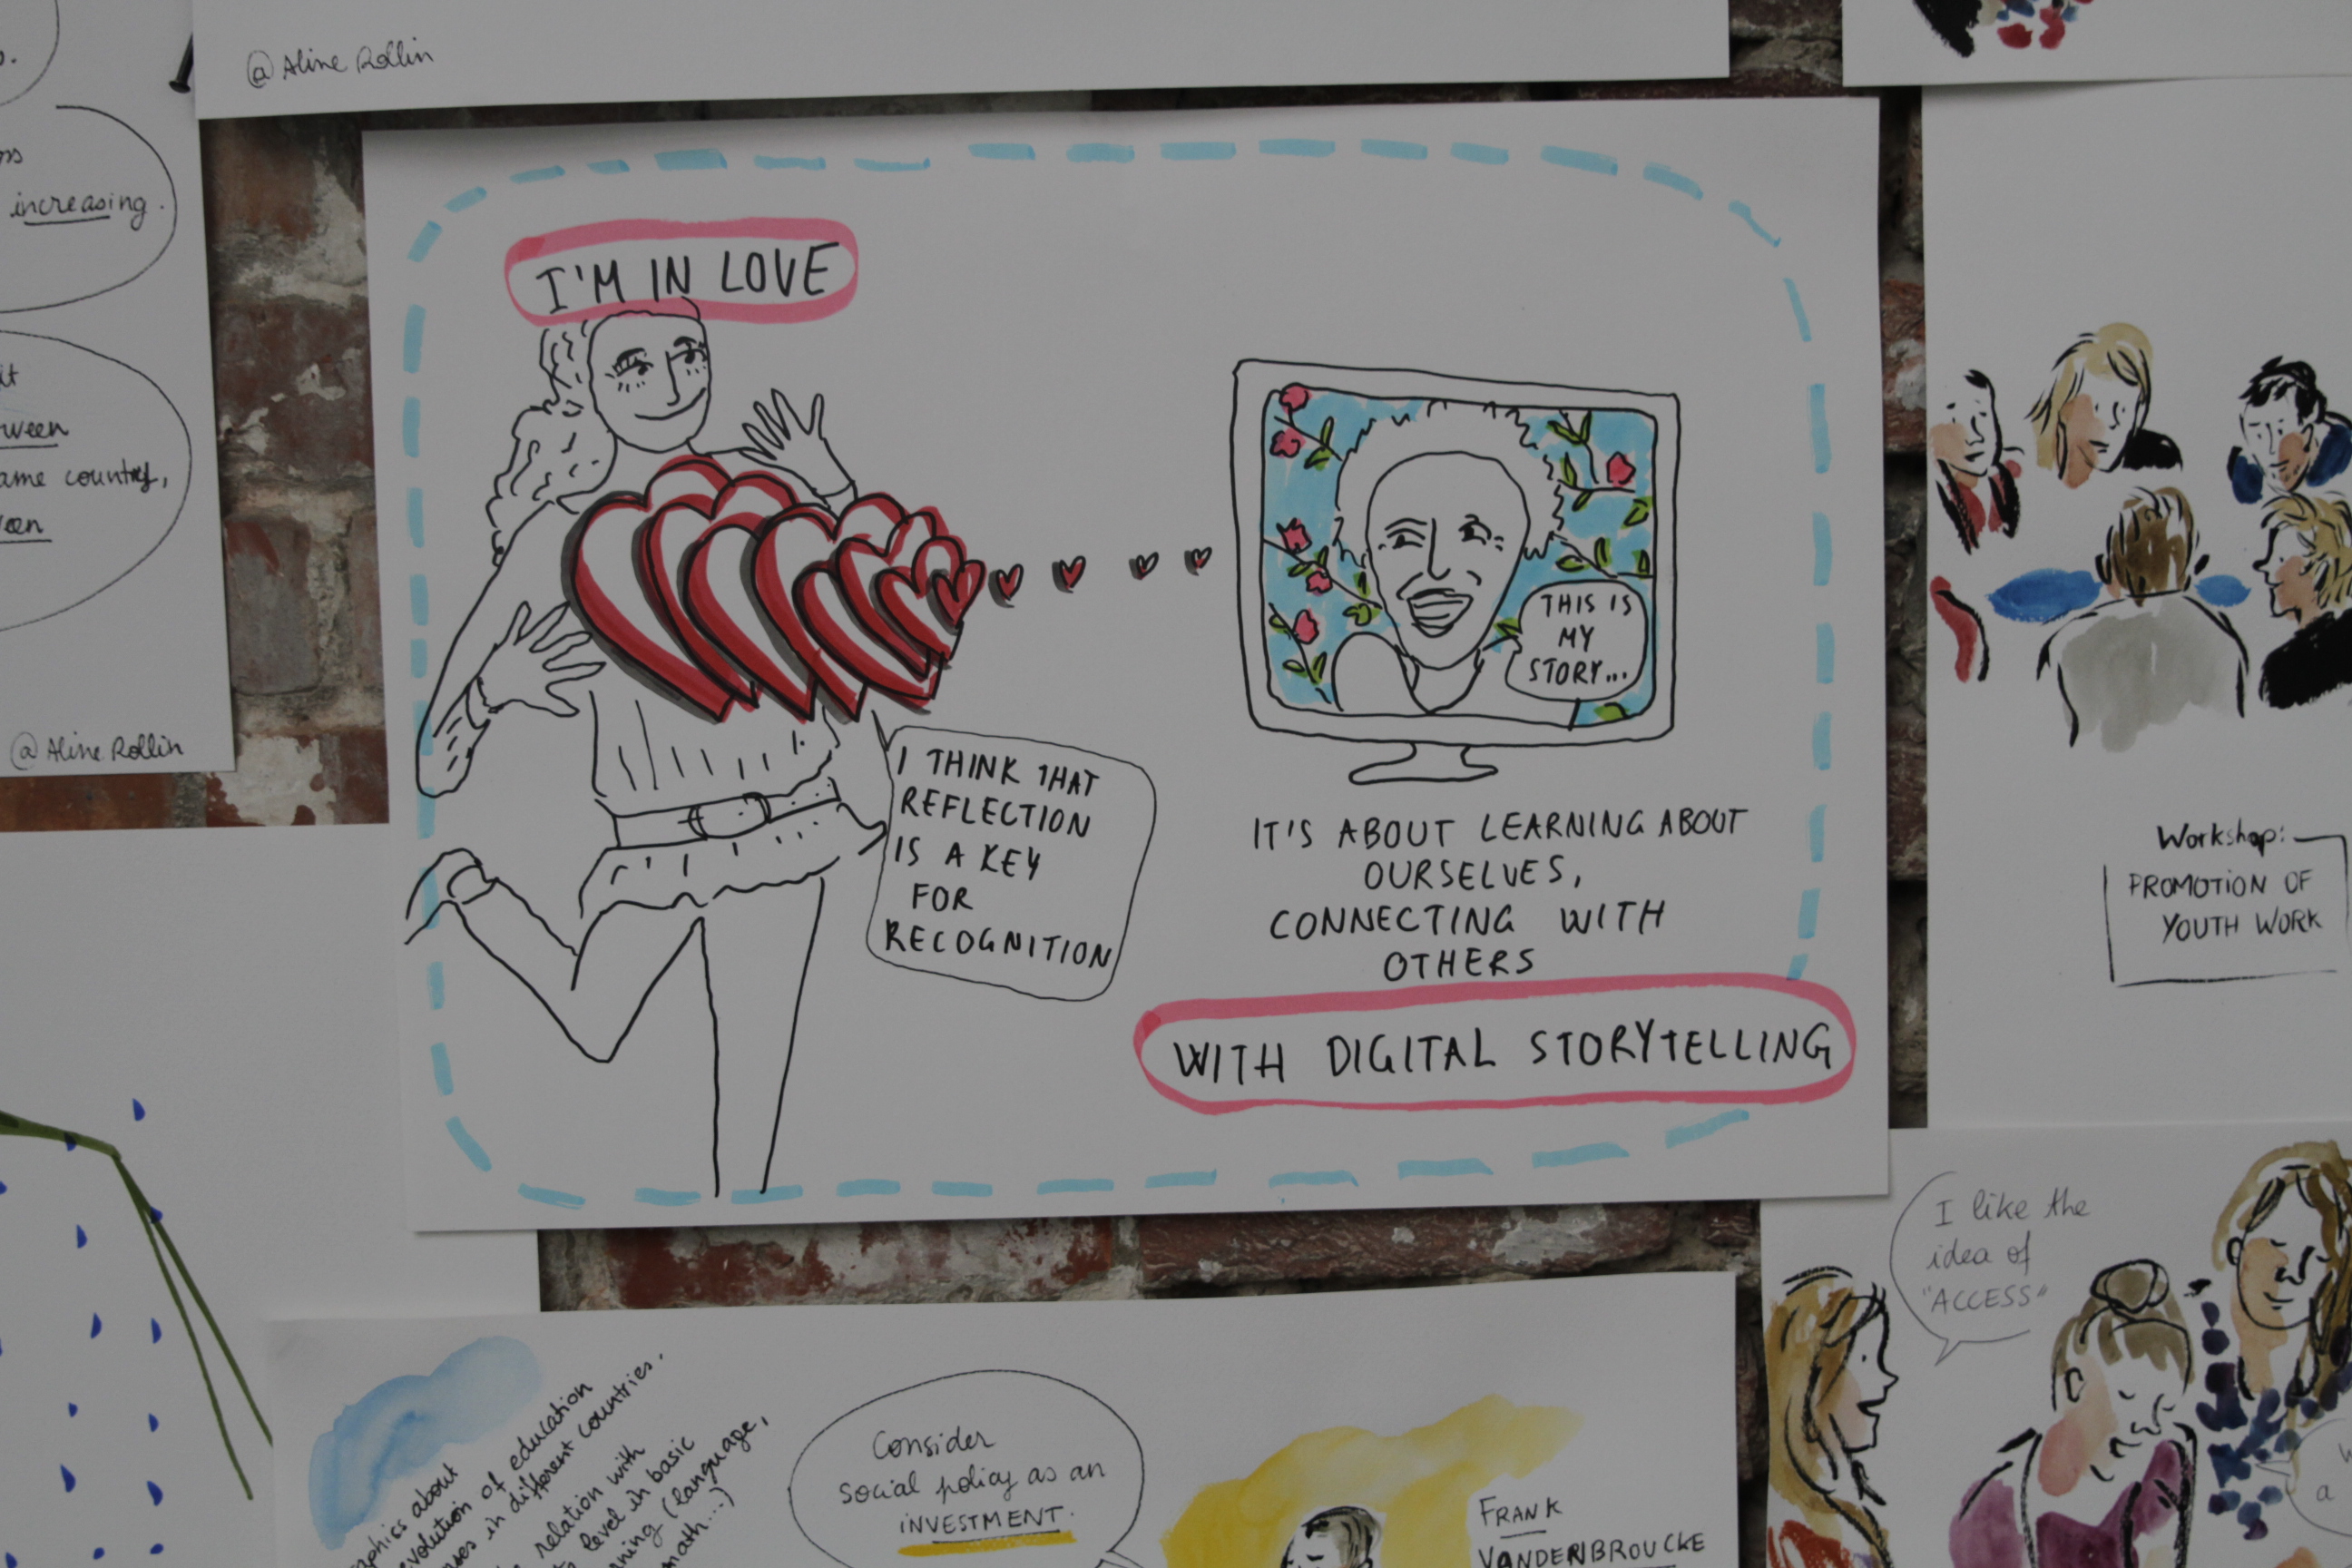 @Aline Rollin
increasing.
ame country,
@Aline Rollin
I'M IN LOVE
THIS IS
MY
STORY...
I THINK THAT
REFLECTION
IS A KEY
FOR
RECOGNITION
IT'S ABOUT LEARNING ABOUT
OURSELVES,
CONNECTING WITH
OTHERS
WITH DIGITAL STORYTELLING
Workshop:
PROMOTION OF
YOUTH WORK
I like the
idea of
"ACCESS"
about
evolution of education
in different countries.
relation with
level in basic
(language,
math...)
Consider
social policy as an
INVESTMENT.
FRANK
VANDENBROUCKE
a